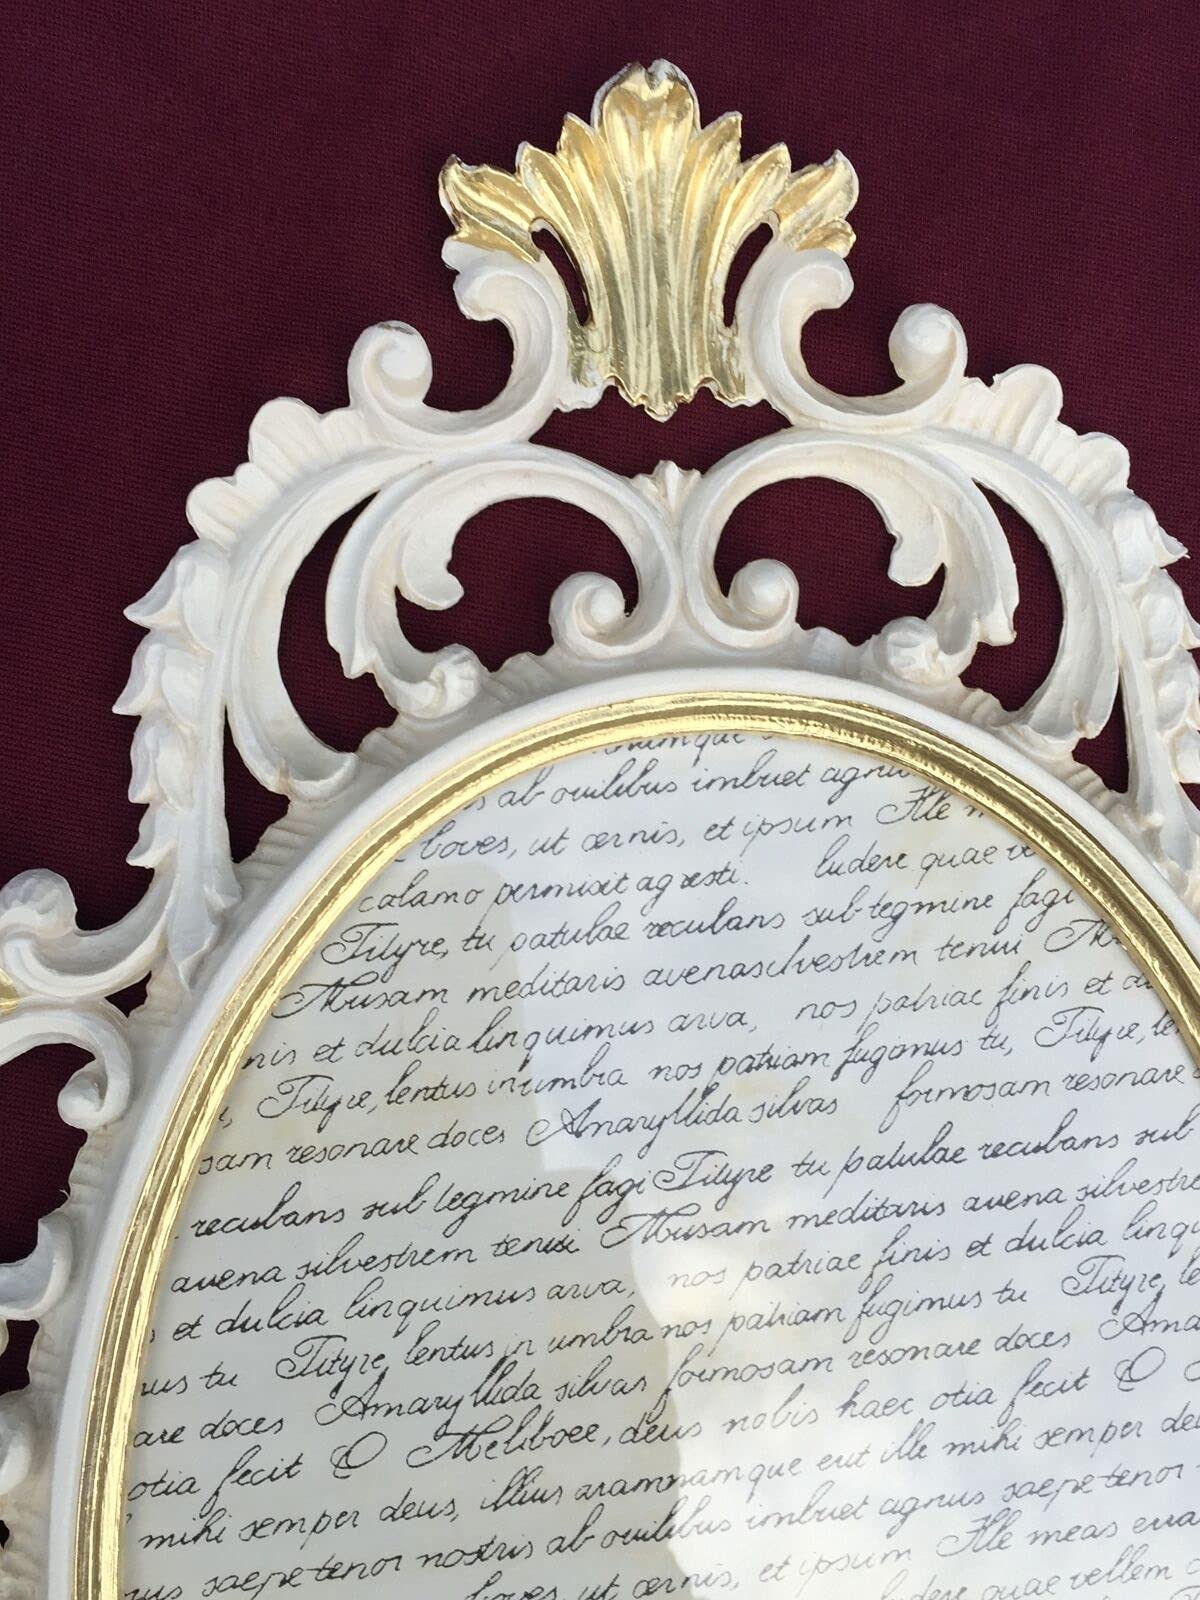 umque
s ab ouilibus imbuet agnu
boves, ut cernis, et ipsum Ille m
calamo permisit agresti. ludere quae ve
Tityre, tu patulae recubans sub tegmine fagi
Musam meditaris avenasilvestrem tenui M
nis et dulcia linquimus arva, nos patriae finis et d
Tityre, lentus inumbra nos patriam fugamus tu, Tityre, le
sam resonare doces Amaryllida silvas formosam resonare
recubans sub tegmine fagi Tityre tu patulae recubans sub
avena silvestrem tenui Musam meditaris avena silvestre
et dulcia linquimus arva, nos patriae finis et dulcia linqu
us tu Tityre, lentus in umbra nos patriam fugimus tu Tityre, le
are doces Amaryllida silvas formosam resonare doces Ama
otia fecit O Meliboee, deus nobis haec otia fecit O
mihi semper deus, illius aramnamque erit ille mihi semper de
us saepe tenor nostris ab ouilibus imbuet agnus saepe tenor
boves, ut cernis, et ipsum Ille meas erra
ludere quae vellem